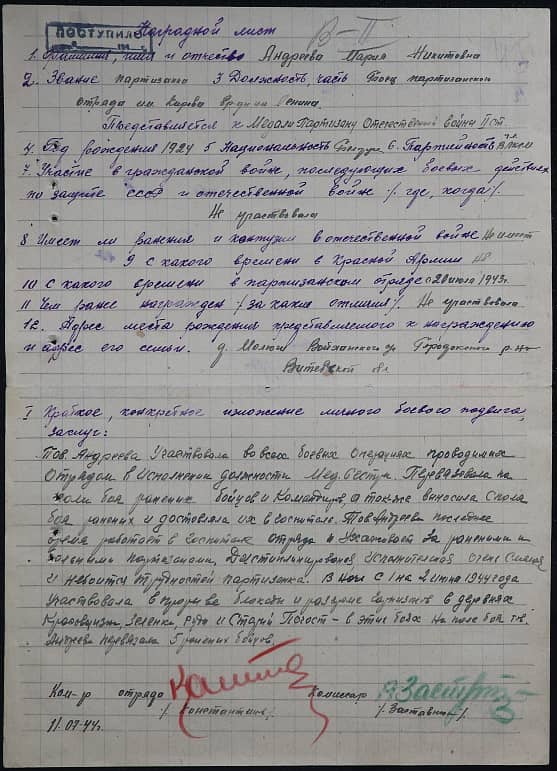 ПОСТУПИЛО
Наградной лист
В-II
1. Фамилия, имя и отчество Андреева Мария Никитовна
2. Звание партизанка 3 Должность, часть Боец партизанского
отряда им Кирова бригады Ленина.
Представляется к Медали Партизану Отечественной войны II ст.
4. Год рождения 1924 5 Национальность 6. Партийность ВЛКСМ
7. Участие в гражданской войне, последующих боевых действиях
по защите СССР и отечественной войне /. где, когда/.
Не участвовала
8 Имеет ли ранения и контузии в отечественной войне Не имеет
9 С какого времени в Красной Армии
10 С какого времени в партизанском отряде с 20 июля 1943г.
11 Чем ранее награжден /за какия отличия/. Не участвовала
12. Адрес места рождения представляемого к награждению
и адрес его семьи. д. Городокского р-на
Витебской
I Краткое, конкретное изложение личного боевого подвига,
заслуг:
Тов. Андреева Участвовала во всех боевых Операциях проводимых
Отрядом в Исполнении должности Мед. Сестры. Перевязовала на
поли боя раненых бойцов и Командиров, а также выносила споля
боя раненых и достовляла их в госпиталь. Тов Андреева последнее
время работает в госпитале отряда и Ухаживает за ранеными и
больными партизанами, Дисциплинирована, исполнительная очень Смелая
и небоится трудностей партизанка. В Ночь с 1 на 2 июня 1944 года
Участвовала в прорыва блокады и разгроме в деревнях
и Старый Погост - в этих боях На поле боя тов.
Андреева перевязала 5 раненых бойцов.
Ком-р отряда Комиссар
/. Константинов/. /. Заставный/.
11.07.44г.